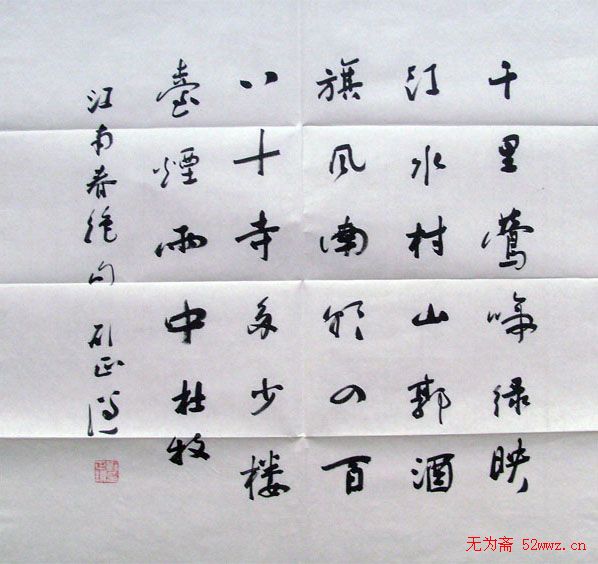 千里鶯啼绿映
红水村山郭酒
旗风南朝四百
八十寺多少楼
臺煙雨中杜牧
江南春绝句
无为斋 52wwz.cn